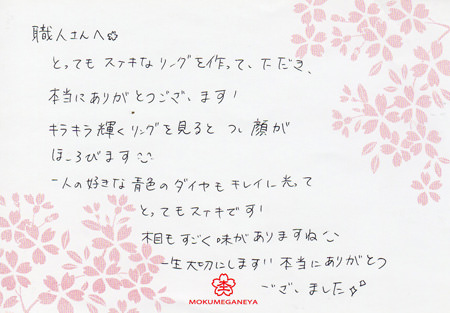 職人さんへ☆
とってもステキなリングを作って、ただき、
本当にありがとうございます!
キラキラ輝くリングを見ると つい顔が
ほころびます
二人の好きな青色のダイヤもキレイに光って
とってもステキです!
木目もすごく味がありますね
一生大切にします!! 本当にありがとう
ございました☆
MOKUMEGANEYA